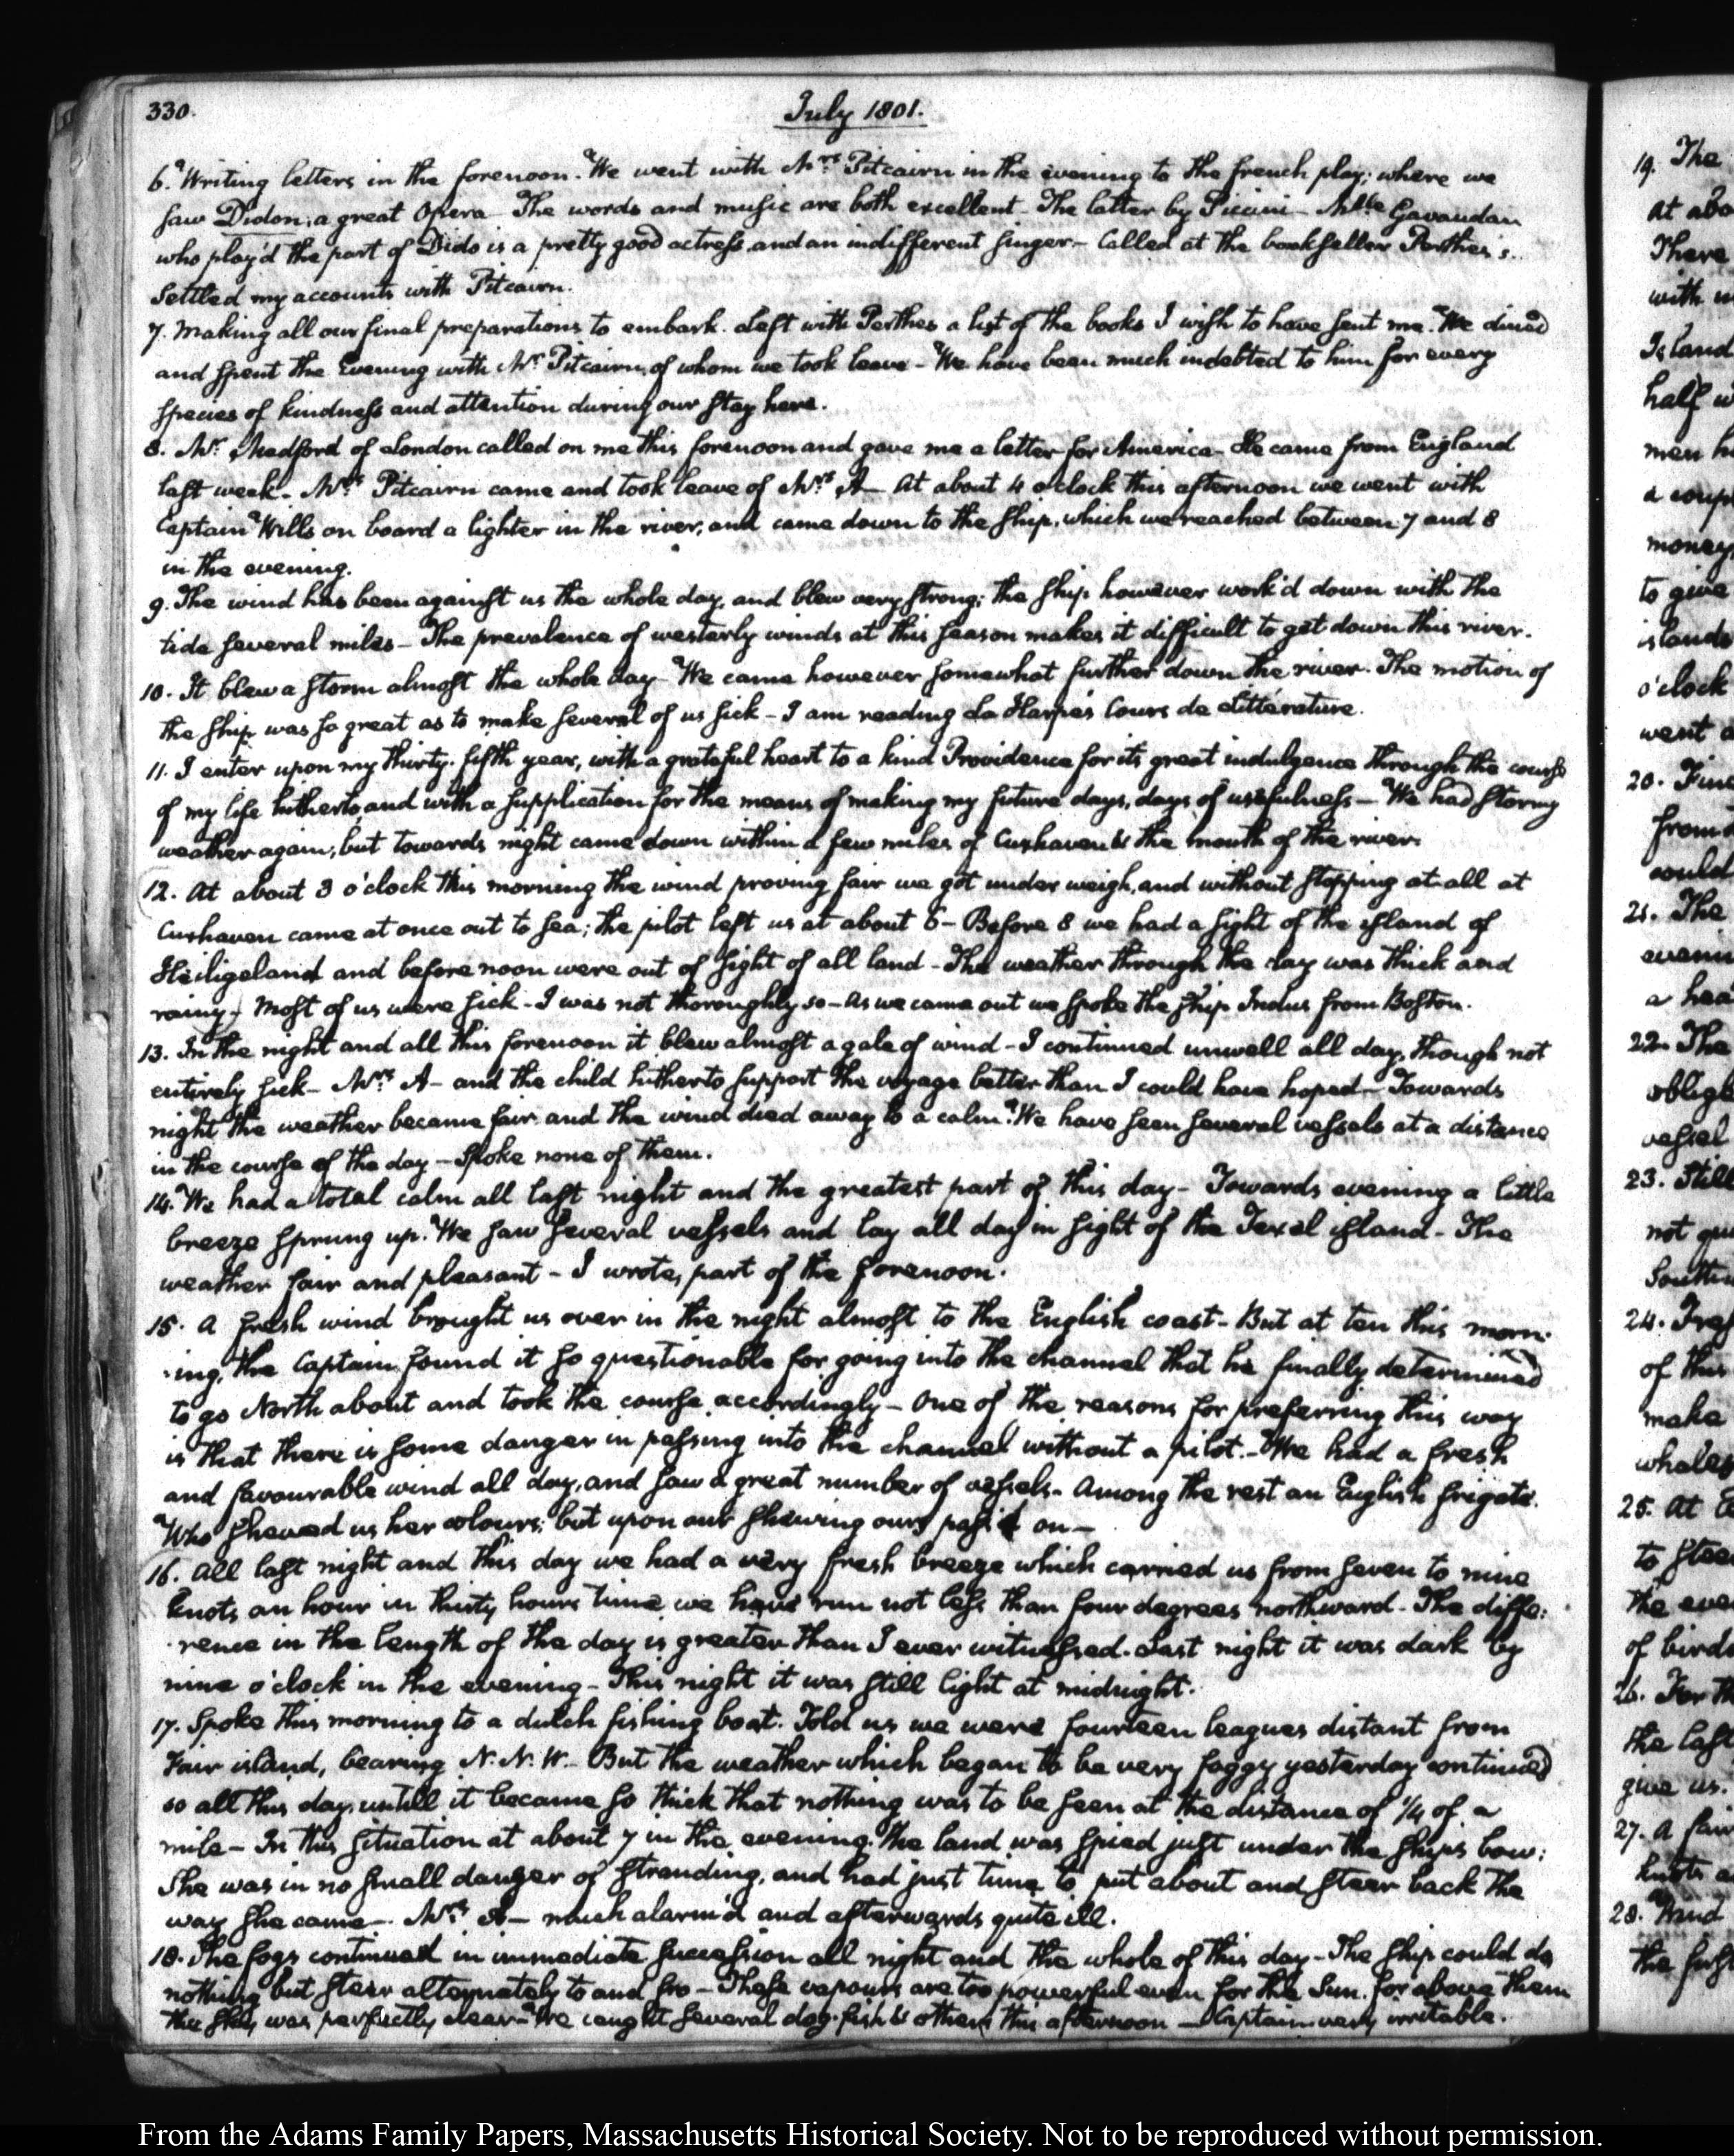 330.
July 1801.
6. Writing letters in the forenoon. We went with Mrs. Pitcairn in the evening to the french play; where we
saw Didon, a great Opera - The words and music are both excellent - The latter by Picini - Mlle Gavaudan
who play'd the part of Dido is a pretty good actress, and an indifferent singer - Called at the bookseller Perthes's.
Settled my accounts with Pitcairn.
7. Making all our final preparations to embark. Left with Perthes a list of the books I wish to have sent me. We dined
and spent the Evening with Mr. Pitcairn, of whom we took leave - We have been much indebted to him for every
species of kindness and attention during our stay here.
8. Mr. Medford of London called on me this forenoon and gave me a letter for America - He came from England
last week - Mrs. Pitcairn came and took leave of Mrs. A - At about 4 o'clock this afternoon we went with
Captain Wills on board a lighter in the river, and came down to the ship, which we reached between 7 and 8
in the evening.
9. The wind has been against us the whole day, and blew very strong; the ship however work'd down with the
tide several miles - The prevalence of westerly winds at this season makes it difficult to get down this river.
10. It blew a storm almost the whole day - We came however somewhat further down the river. The motion of
the ship was so great as to make several of us sick - I am reading La Harpe's Cours de Littérature.
11. I enter upon my thirty-fifth year, with a grateful heart to a kind Providence for its great indulgence through the course
of my life hitherto, and with a supplication for the means of making my future days, days of usefulness - We had stormy
weather again; but towards night came down within a few miles of Cuxhaven & the mouth of the river.
12. At about 3 o'clock this morning the wind proving fair we got under weigh, and without stopping at all at
Cuxhaven came at once out to sea; the pilot left us at about 6 - Before 8 we had a sight of the island of
Heiligeland and before noon were out of sight of all land - The weather through the day was thick and
rainy - Most of us were sick - I was not thoroughly so - As we came out we spoke the ship Indus from Boston.
13. In the night and all this forenoon it blew almost a gale of wind - I continued unwell all day, though not
entirely sick - Mrs. A - and the child hitherto support the voyage better than I could have hoped - Towards
night the weather became fair and the wind died away to a calm. We have seen several vessels at a distance
in the course of the day - Spoke none of them.
14. We had a total calm all last night and the greatest part of this day - Towards evening a little
breeze sprung up. We saw several vessels and lay all day in sight of the Texel island - The
weather fair and pleasant - I wrote, part of the forenoon.
15. A fresh wind brought us over in the night almost to the English coast - But at ten this morn-
-ing, the Captain found it so questionable for going into the channel that he finally determined
to go North about and took the course accordingly - One of the reasons for preferring this way
is that there is some danger in passing into the channel without a pilot. - We had a fresh
and favourable wind all day, and saw a great number of vessels - Among the rest an English frigate.
Who shewed us her colours; but upon our shewing ours pass'd on -
16. All last night and this day we had a very fresh breeze which carried us from seven to nine
knots an hour in thirty hours time we have run not less than four degrees northward - The diffe:
rence in the length of the day is greater than I ever witnessed. Last night it was dark by
nine o'clock in the evening - This night it was still light at midnight.
17. Spoke this morning to a dutch fishing boat. Told us we were fourteen leagues distant from
Fair island, bearing N. N. W - But the weather which began to be very foggy yesterday continued
so all this day, untill it became so thick that nothing was to be seen at the distance of 1/4 of a
mile - In this situation at about 7 in the evening, the land was spied just under the ships bow:
She was in no small danger of stranding, and had just time to put about and steer back the
way she came - Mrs. A - much alarm'd and afterwards quite ill.
18. The fogs continued in immediate succession all night and the whole of this day - The ship could do
nothing but steer alternately to and fro - These vapours are too powerful even for the Sun, for above them
the sky was perfectly clear - We caught several dog-fish & others this afternoon - Captain very irritable.
19. The
at abo
There
with
Island
half
men h
a coup
money
to give
islands
o'clock
went a
20. Fine
from
could
21. The
evenin
a hea
22. The
oblige
vessel
23. Still
not qu
South
24. Fres
of this
make
whales
25. At
to stee
the eve
of birds
26. For th
the last
give us.
27. A fair
knots a
28. Wind
the first
From the Adams Family Papers, Massachusetts Historical Society. Not to be reproduced without permission.